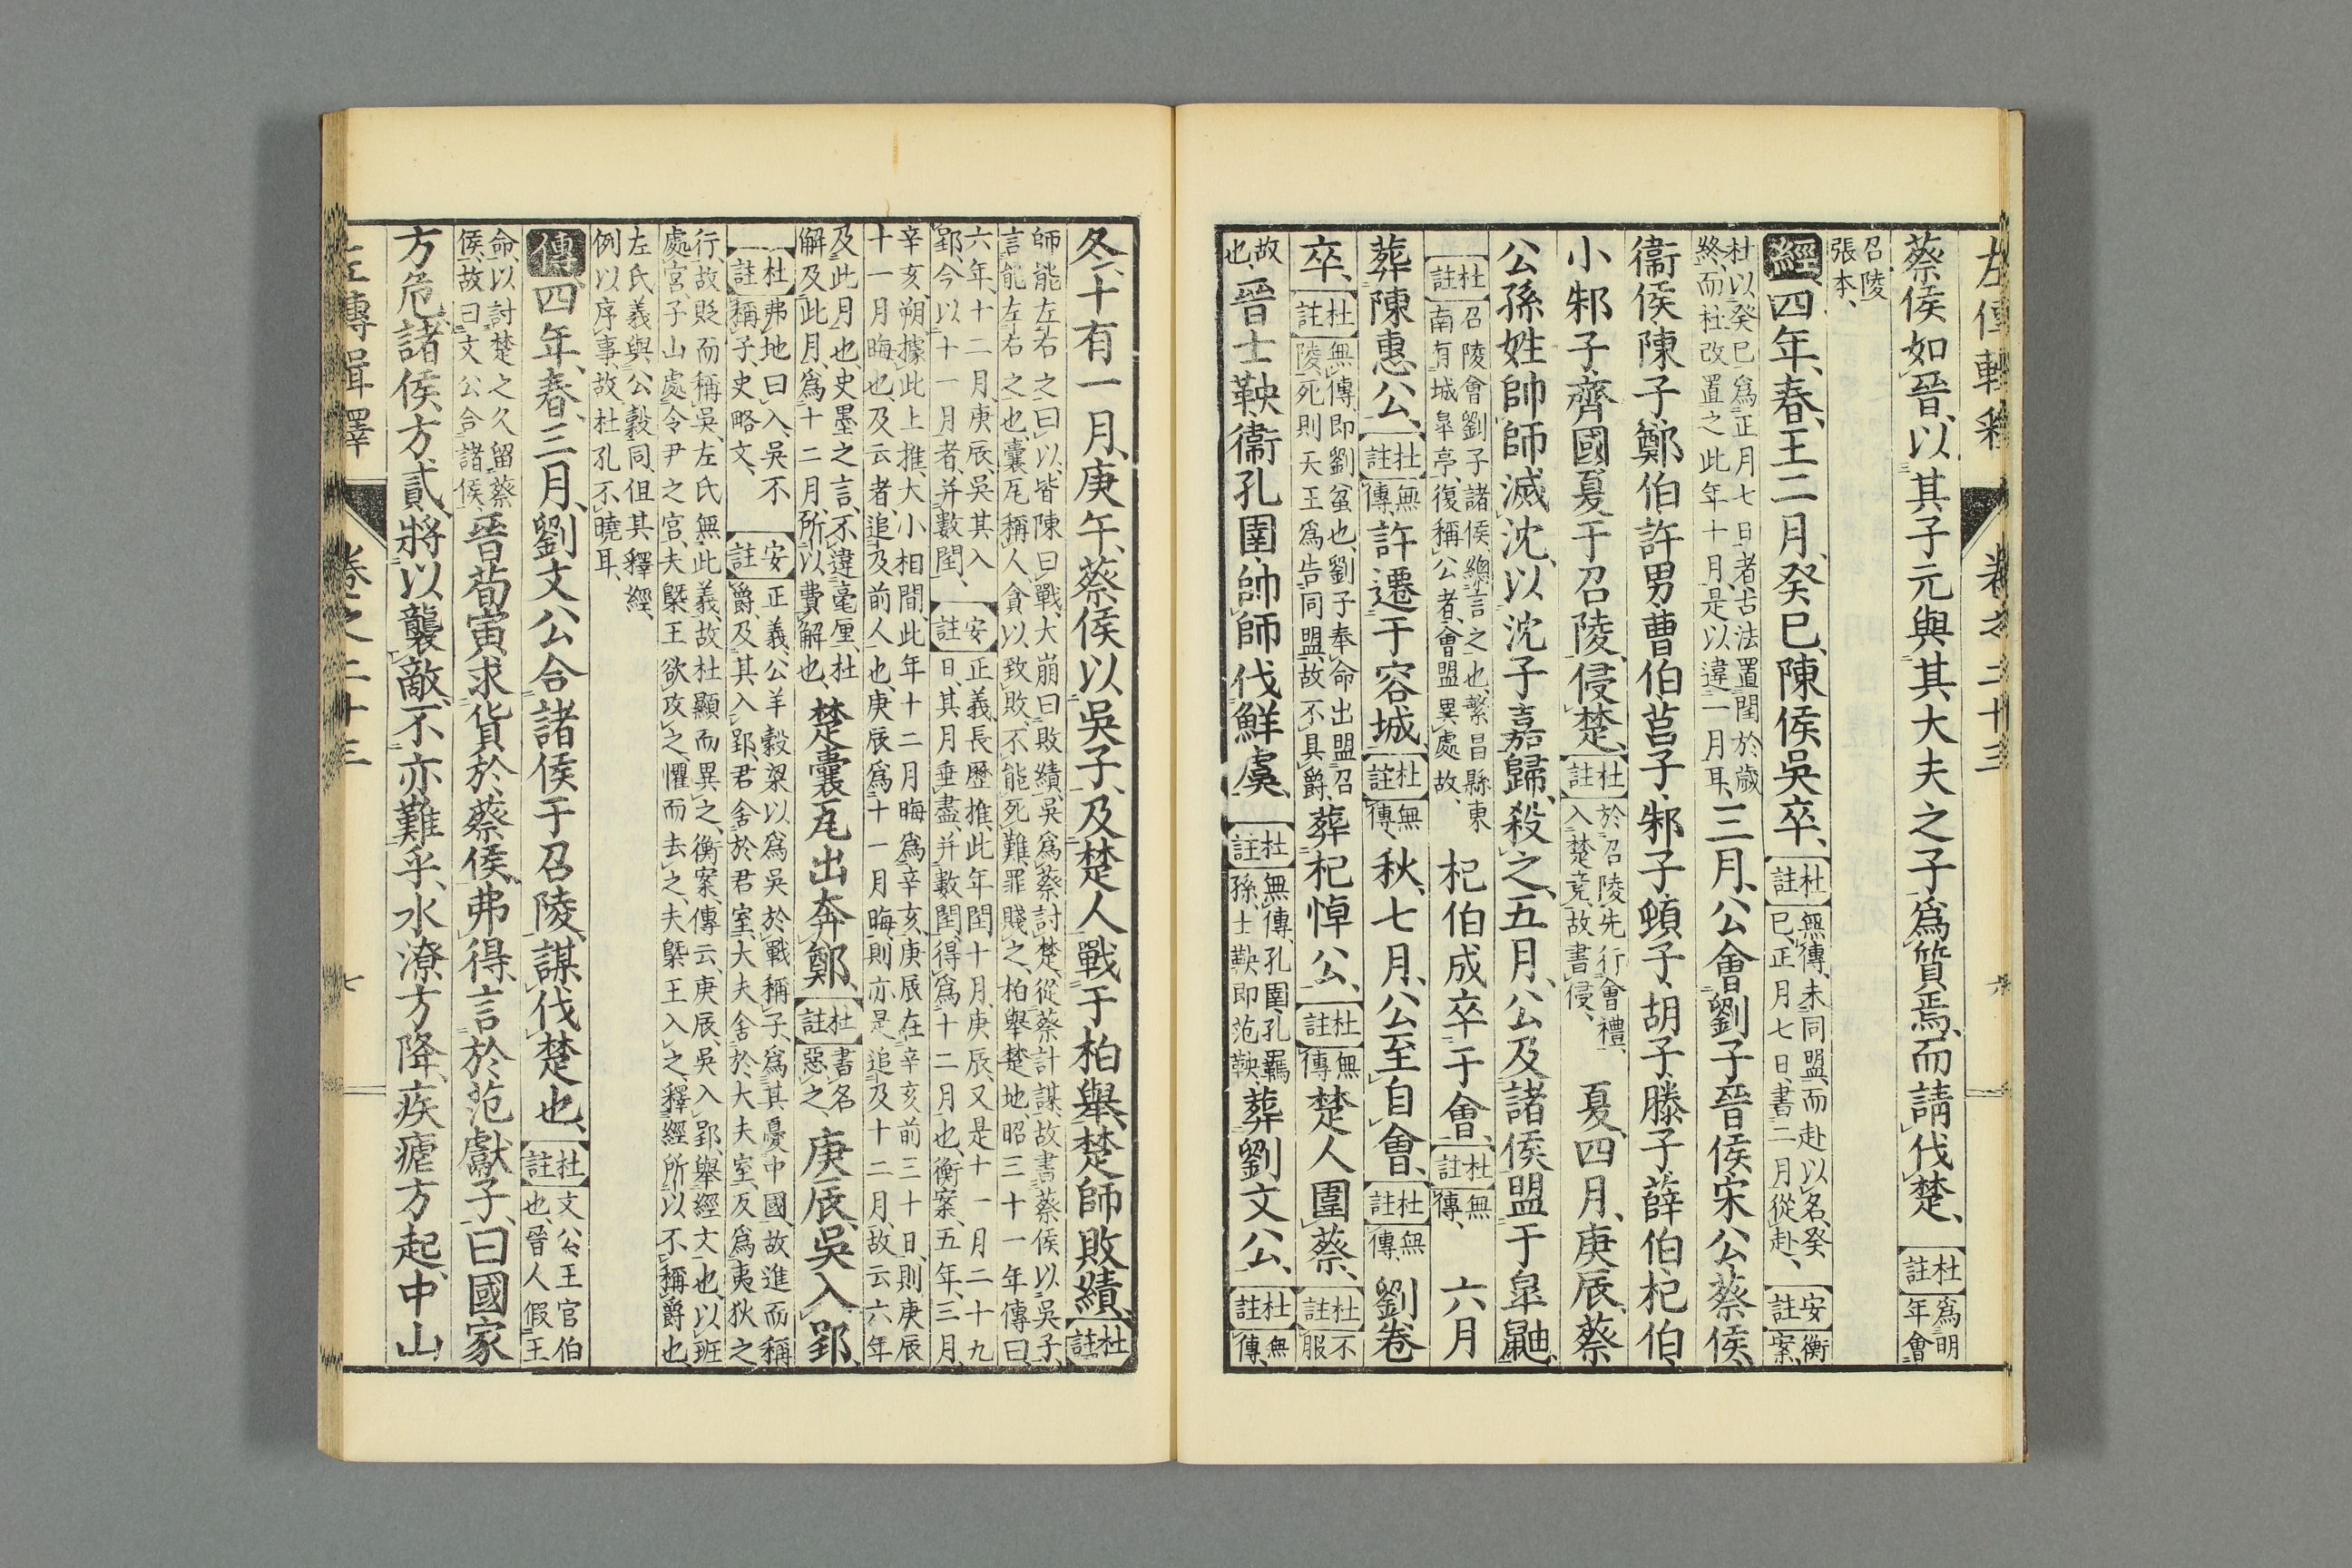 左傳輯釋 卷之二十三 六
蔡侯如晉、以其子元與其大夫之子爲質焉、而請伐楚、杜註爲明年會
召陵張本、
經四年、春、王二月、癸巳、陳侯吳卒、杜註無傳、未同盟而赴以名、癸巳、正月七日、書二月從赴、安註衡案、
杜以癸巳爲正月七日者、古法置閏於歲終、而杜改置之此年十月、是以違一月耳、三月、公會劉子晉侯宋公蔡侯、
衞侯陳子鄭伯許男曹伯莒子邾子頓子胡子滕子薛伯杞伯、
小邾子齊國夏于召陵、侵楚、杜註於召陵先行會禮、入楚竟、故書侵、夏四月、庚辰、蔡
公孫姓帥師滅沈、以沈子嘉歸、殺之、五月、公及諸侯盟于皐鼬、
杜註召陵會劉子諸侯、總言之也、繁昌縣東南有城皐亭、復稱公者、會盟異處故、杞伯成卒于會、杜註無傳、六月
葬陳惠公、杜註無傳、許遷于容城、杜註無傳、秋、七月、公至自會、杜註無傳、劉卷
卒、杜註無傳、即劉蚠也、劉子奉命出盟召陵、死則天王爲告同盟、故不具爵、葬杞悼公、杜註無傳、楚人圍蔡、杜註不服
故也、晉士鞅衞孔圉、帥師伐鮮虞、杜註無傳、孔圉、孔羈孫、士鞅即范鞅、葬劉文公、杜註無傳、
冬、十有一月、庚午、蔡侯以吳子、及楚人戰于柏舉、楚師敗績、杜註
師能左右之曰以、皆陳曰戰、大崩曰敗績、吳爲蔡討楚、從蔡計謀、故書蔡侯以吳子、言能左右之也、囊瓦稱人貪以致敗、不能死難、罪賤之、柏舉楚地、昭三十一年傳曰、
六年、十二月、庚辰、吳其入郢、今以十一月者、并數閏、安註正義、長歷推、此年閏十月、庚辰、又是十一月二十九日、其月垂盡、并數閏、得爲十二月也、衡案、五年、三月、
辛亥、朔、據此上推、大小相間、此年十二月晦爲辛亥、庚辰在辛亥前三十日、則庚辰十一月晦也、及云者、追及前人也、庚辰爲十一月晦、則亦是追及十二月、故云六年
及此月也、史墨之言、不違毫厘、杜解及此月、爲十二月、所以費解也、楚囊瓦出奔鄭、杜註書名惡之、庚辰、吳入郢、
杜註弗地曰入、吳不稱子、史略文、安註正義、公羊穀梁以爲吳於戰稱子、爲其憂中國、故進而稱爵、及其入郢、君舍於君室、大夫舍於大夫室、反爲夷狄之
行、故貶而稱吳、左氏無此義、故杜顯而異之、衡案、傳云、庚辰、吳入郢、舉經文也、以班處宮、子山處令尹之宮、夫槩王欲攻之、懼而去之、夫槩王入之、釋經所以不稱爵也、
左氏義與公穀同、但其釋經、例以序事、故杜孔不曉耳、
傳四年、春、三月、劉文公合諸侯于召陵、謀伐楚也、杜註文公、王官伯也、晉人假王
命、以討楚之久留蔡侯、故曰文公合諸侯、晉荀寅求貨於蔡侯、弗得、言於范獻子、曰國家
方危、諸侯方貳、將以襲敵、不亦難乎、水潦方降、疾瘧方起、中山
左傳輯釋 卷之二十三 七